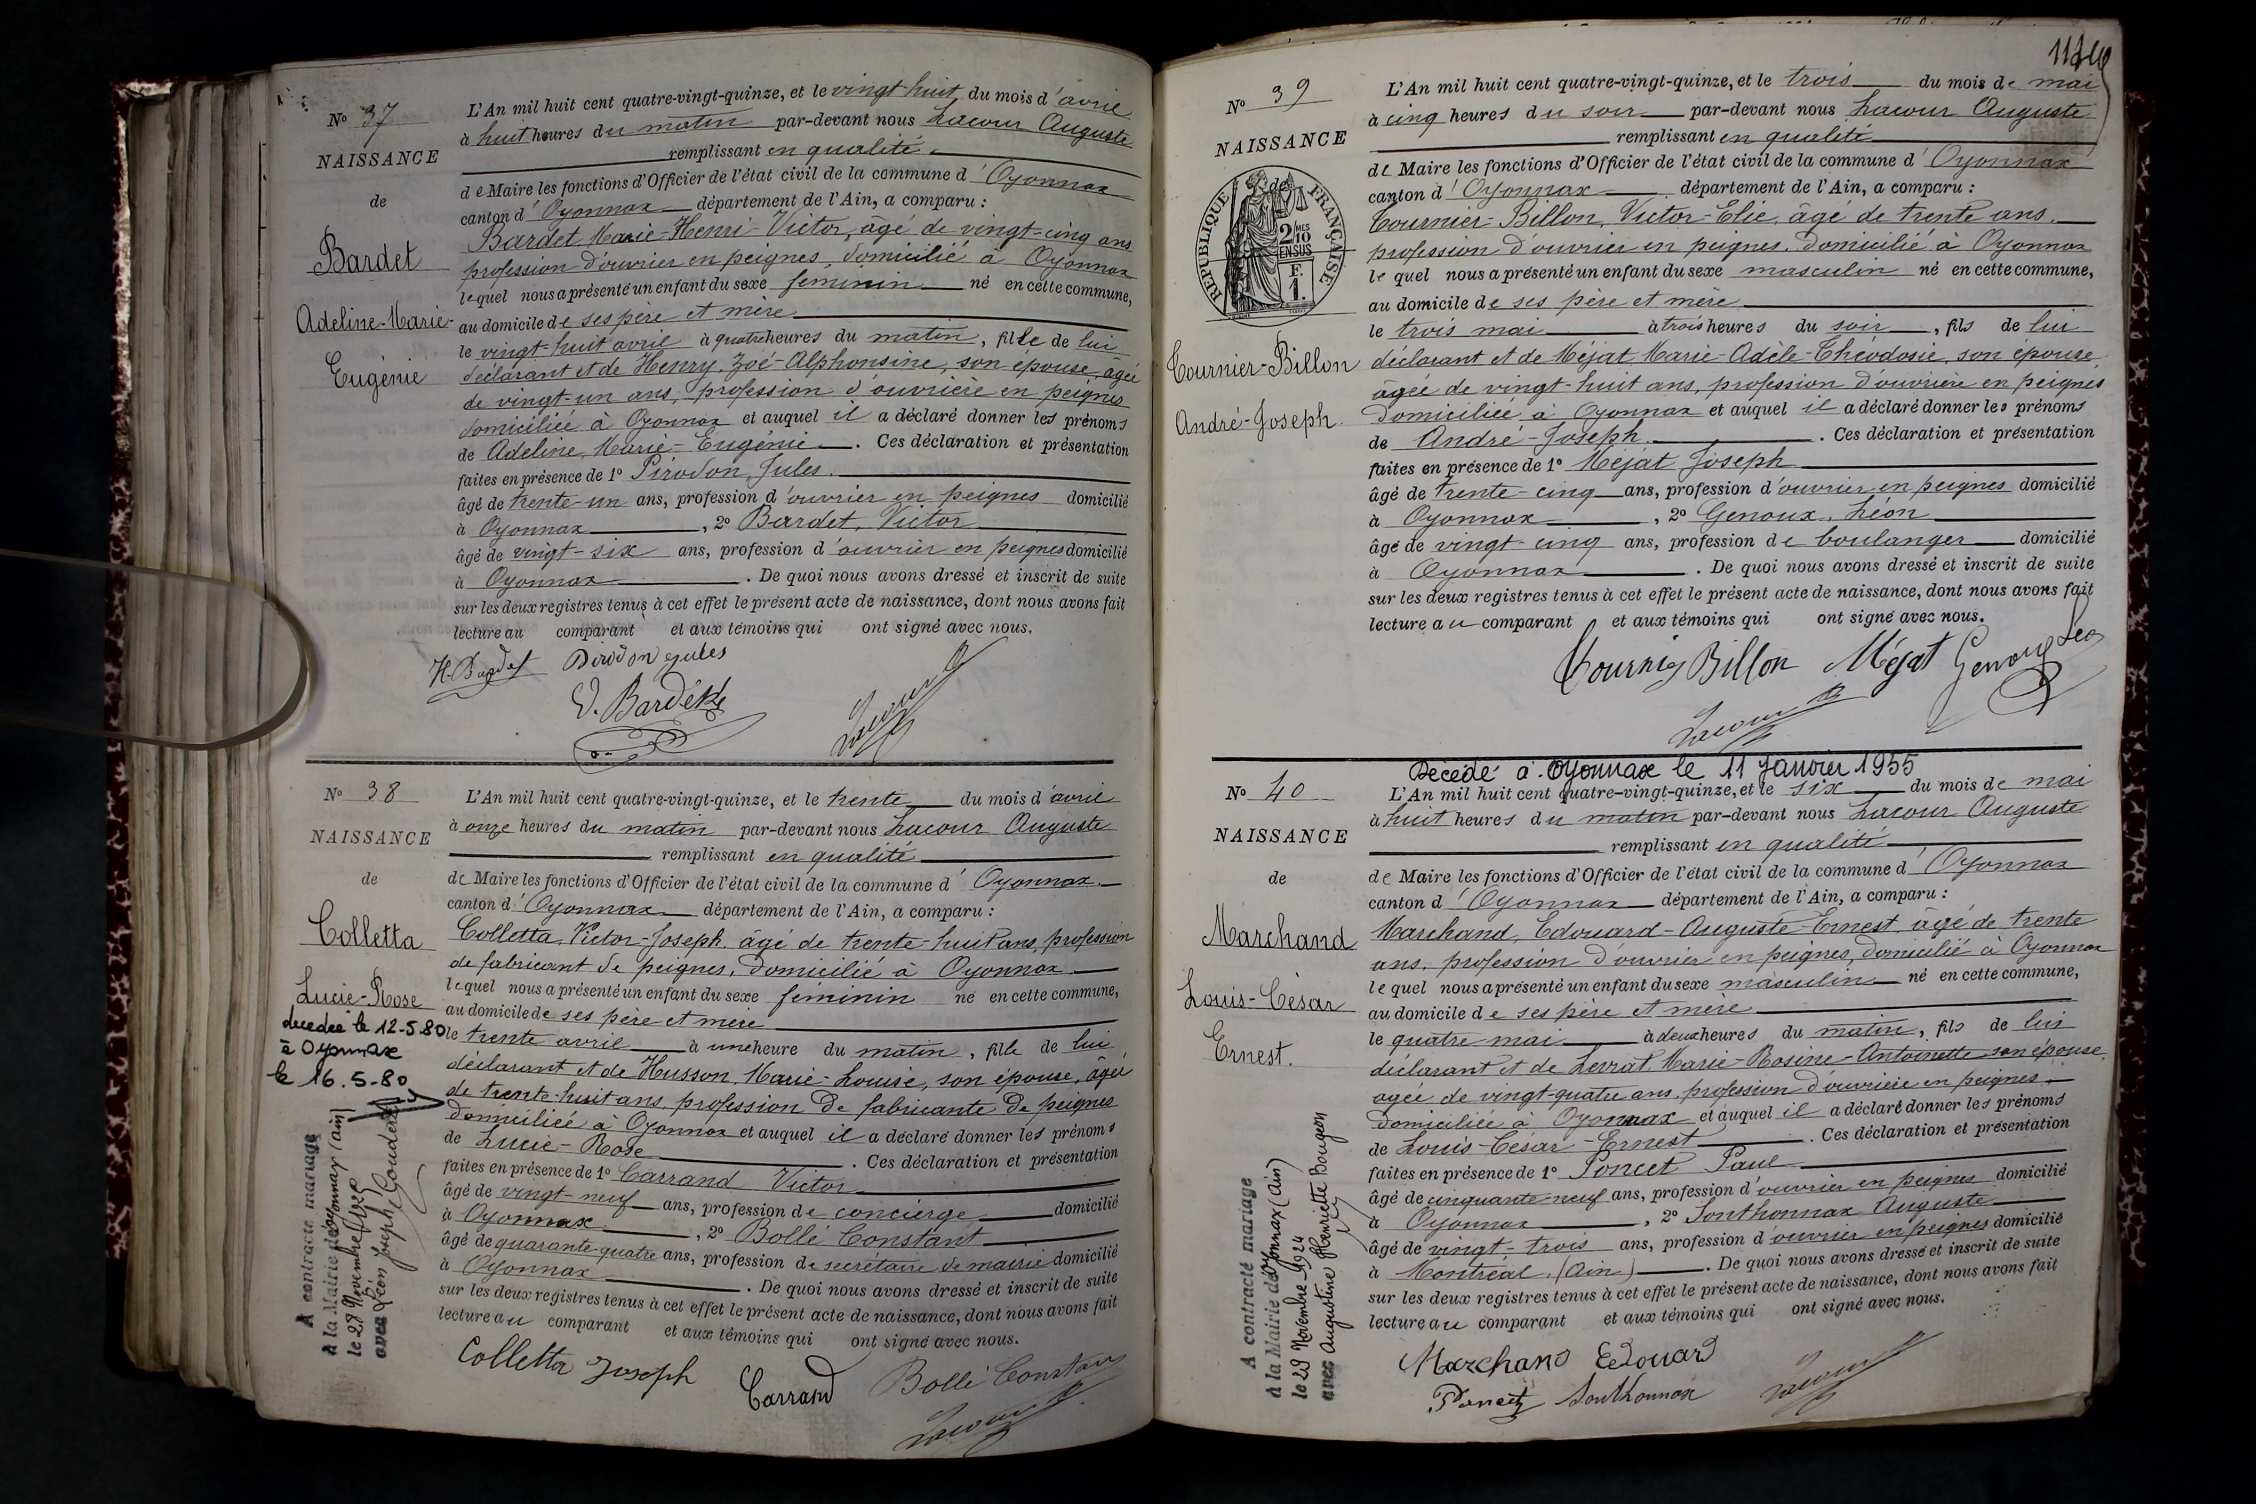 Nº 37
NAISSANCE
de
Bardet
Adeline-Marie-
Eugénie
L'An mil huit cent quatre-vingt-quinze, et le vingt-huit du mois d'avril
à huit heures du matin par-devant nous Lacour Auguste
remplissant en qualité
de Maire les fonctions d'Officier de l'état civil de la commune d'Oyonnax
canton d'Oyonnax département de l'Ain, a comparu :
Bardet Marie-Henri-Victor, âgé de vingt-cinq ans
profession d'ouvrier en peignes, domicilié à Oyonnax
lequel nous a présenté un enfant du sexe féminin né en cette commune,
au domicile de ses père et mère
le vingt-huit avril à quatre heures du matin, fille de lui
déclarant et de Henry, Zoé-Alphonsine, son épouse, agée
de vingt-un ans, profession d'ouvrière en peignes
domiciliée à Oyonnax et auquel il a déclaré donner les prénoms
de Adeline, Marie-Eugénie. Ces déclaration et présentation
faites en présence de 1º Pirodon, Jules.
âgé de trente-un ans, profession d'ouvrier en peignes domicilié
à Oyonnax, 2º Bardet, Victor
âgé de vingt-six ans, profession d'ouvrier en peignes domicilié
à Oyonnax. De quoi nous avons dressé et inscrit de suite
sur les deux registres tenus à cet effet le présent acte de naissance, dont nous avons fait
lecture au comparant et aux témoins qui ont signé avec nous.
H. Bardet Pirodon Jules
V. Bardet
Lacour A
Nº 38
NAISSANCE
de
Colletta
Lucie-Rose
decedée le 12-5-80
à Oyonnax
le 16.5-80
A contracté mariage
à la Mairie de Oyonnax (Ain)
le 28 Novembre
avec Léon Joseph
L'An mil huit cent quatre-vingt-quinze, et le trente du mois d'avril
à onze heures du matin par-devant nous Lacour Auguste
remplissant en qualité
de Maire les fonctions d'Officier de l'état civil de la commune d'Oyonnax
canton d'Oyonnax département de l'Ain, a comparu :
Colletta, Victor-Joseph, âgé de trente-huit ans, profession
de fabricant de peignes, domicilié à Oyonnax
lequel nous a présenté un enfant du sexe féminin né en cette commune,
au domicile de ses père et mère
le trente avril à une heure du matin, fille de lui
déclarant et de Husson, Marie-Louise, son épouse, âgée
de trente-huit ans, profession de fabricante de peignes
domiciliée à Oyonnax et auquel il a déclaré donner les prénoms
de Lucie-Rose. Ces déclaration et présentation
faites en présence de 1º Carrand Victor
âgé de vingt-neuf ans, profession de concierge domicilié
à Oyonnax, 2º Bollé Constant
âgé de quarante-quatre ans, profession de secrétaire de mairie domicilié
à Oyonnax. De quoi nous avons dressé et inscrit de suite
sur les deux registres tenus à cet effet le présent acte de naissance, dont nous avons fait
lecture au comparant et aux témoins qui ont signé avec nous.
Colletta Joseph Carrand Bollé Constant
Lacour A
Nº 39
NAISSANCE
de
RÉPUBLIQUE FRANÇAISE
2 MES 10
EN SUS
F.
1.
Tournier-Billon
André-Joseph.
L'An mil huit cent quatre-vingt-quinze, et le trois du mois de mai
à cinq heures du soir par-devant nous Lacour Auguste
remplissant en qualité
de Maire les fonctions d'Officier de l'état civil de la commune d'Oyonnax
canton d'Oyonnax département de l'Ain, a comparu :
Tournier-Billon, Victor-Elie, âgé de trente ans.
profession d'ouvrier en peignes, domicilié à Oyonnax
lequel nous a présenté un enfant du sexe masculin né en cette commune,
au domicile de ses père et mère
le trois mai à trois heures du soir, fils de lui
déclarant et de Méjat Marie-Adèle-Théodosie, son épouse,
âgée de vingt-huit ans, profession d'ouvrière en peignes
domiciliée à Oyonnax et auquel il a déclaré donner les prénoms
de André-Joseph. Ces déclaration et présentation
faites en présence de 1º Méjat Joseph
âgé de trente-cinq ans, profession d'ouvrier en peignes domicilié
à Oyonnax, 2º Genoux, Léon
âgé de vingt-cinq ans, profession de boulanger domicilié
à Oyonnax. De quoi nous avons dressé et inscrit de suite
sur les deux registres tenus à cet effet le présent acte de naissance, dont nous avons fait
lecture au comparant et aux témoins qui ont signé avec nous.
Tournier Billon Méjat Genoux Léon
Lacour A
Décédé à Oyonnax le 11 Janvier 1955
Nº 40
NAISSANCE
de
Marchand
Louis-César
Ernest.
A contracté mariage
à la Mairie de Oyonnax (Ain)
le 29 Novembre 1924
avec Augustine Henriette Bougeon
L'An mil huit cent quatre-vingt-quinze, et le six du mois de mai
à huit heures du matin par-devant nous Lacour Auguste
remplissant en qualité
de Maire les fonctions d'Officier de l'état civil de la commune d'Oyonnax
canton d'Oyonnax département de l'Ain, a comparu :
Marchand, Edouard-Auguste-Ernest, âgé de trente
ans, profession d'ouvrier en peignes, domicilié à Oyonnax
lequel nous a présenté un enfant du sexe masculin né en cette commune,
au domicile de ses père et mère
le quatre mai à deux heures du matin, fils de lui
déclarant et de Levrat, Marie-Rosine-Antoinette son épouse,
agée de vingt-quatre ans, profession d'ouvrière en peignes,
domiciliée à Oyonnax et auquel il a déclaré donner les prénoms
de Louis-César-Ernest. Ces déclaration et présentation
faites en présence de 1º Poncet Paul
âgé de cinquante-neuf ans, profession d'ouvrier en peignes domicilié
à Oyonnax, 2º Sonthonnax Auguste
âgé de vingt-trois ans, profession d'ouvrier en peignes domicilié
à Montréal, (Ain). De quoi nous avons dressé et inscrit de suite
sur les deux registres tenus à cet effet le présent acte de naissance, dont nous avons fait
lecture au comparant et aux témoins qui ont signé avec nous.
Marchand Edouard
Poncet Sonthonnax Lacour A